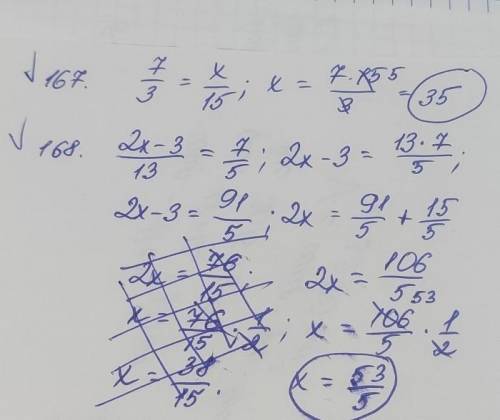 √ 167. 7/3 = x/15; x = 7·15 5/3 = 35
√ 168. 2x-3/13 = 7/5; 2x-3 = 13·7/5;
2x-3 = 91/5; 2x = 91/5 + 15/5
2x = 76/15. 2x = 106/5
x = 76/15 · 1/2; x = 106 53/5 · 1/2
x = 38/15. x = 53/5